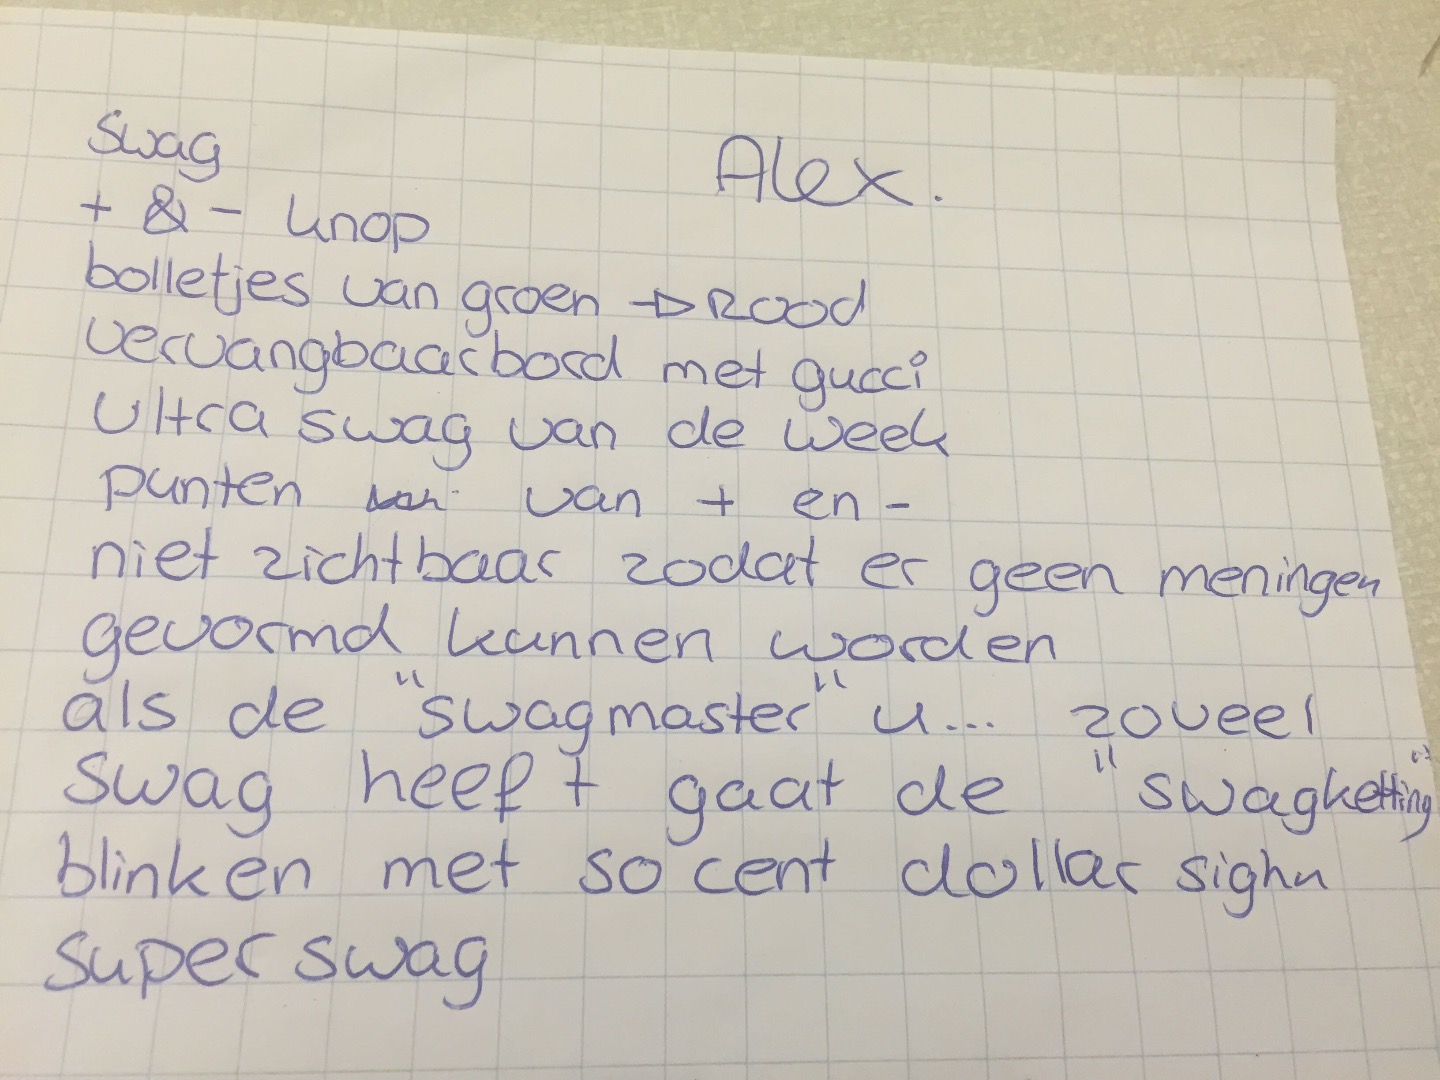 swag
Alex.
+ & - knop
bolletjes van groen → Rood
vervangbaarbord met gucci
Ultra swag van de week
punten van + en -
niet zichtbaar zodat er geen meningen
gevormd kunnen worden
als de "swagmaster" u... zoveel
swag heeft gaat de "swagketting"
blinken met 50 cent dollar sighn
super swag